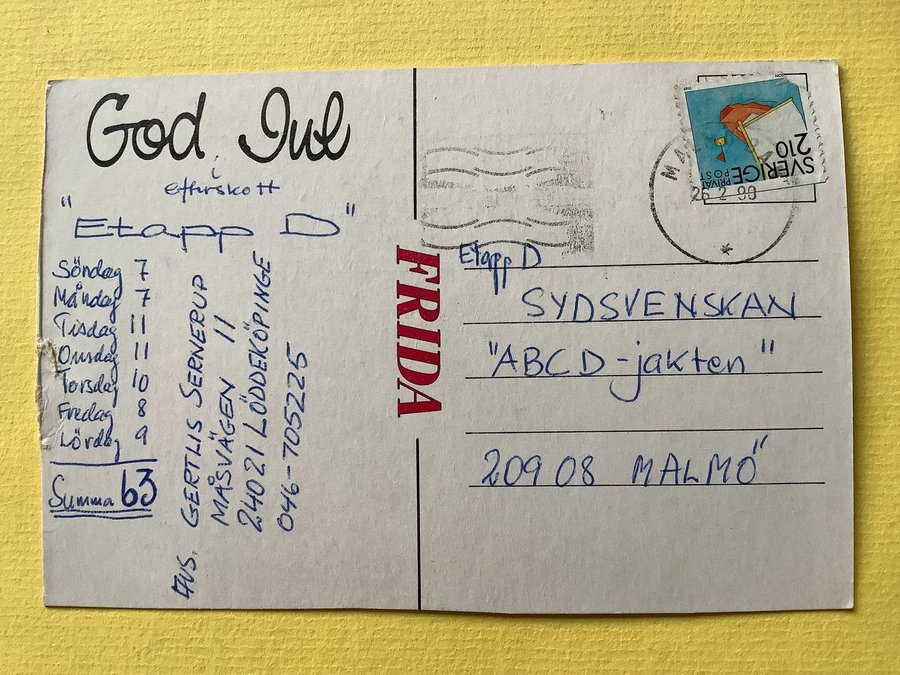 God Jul
i
efterskott
"Etapp D"
Söndag 7
Måndag 7
Tisdag 11
Onsdag 11
Torsdag 10
Fredag 8
Lördag 9
Summa 63
Avs. GERTLIS SERNERUP
MÅSVÄGEN 11
24021 LÖDDEKÖPINGE
046-705225
FRIDA
SVERIGE
210
PRIVAT
POST
26.2.90
Etapp D
SYDSVENSKAN
"ABCD-jakten"
20908 MALMÖ